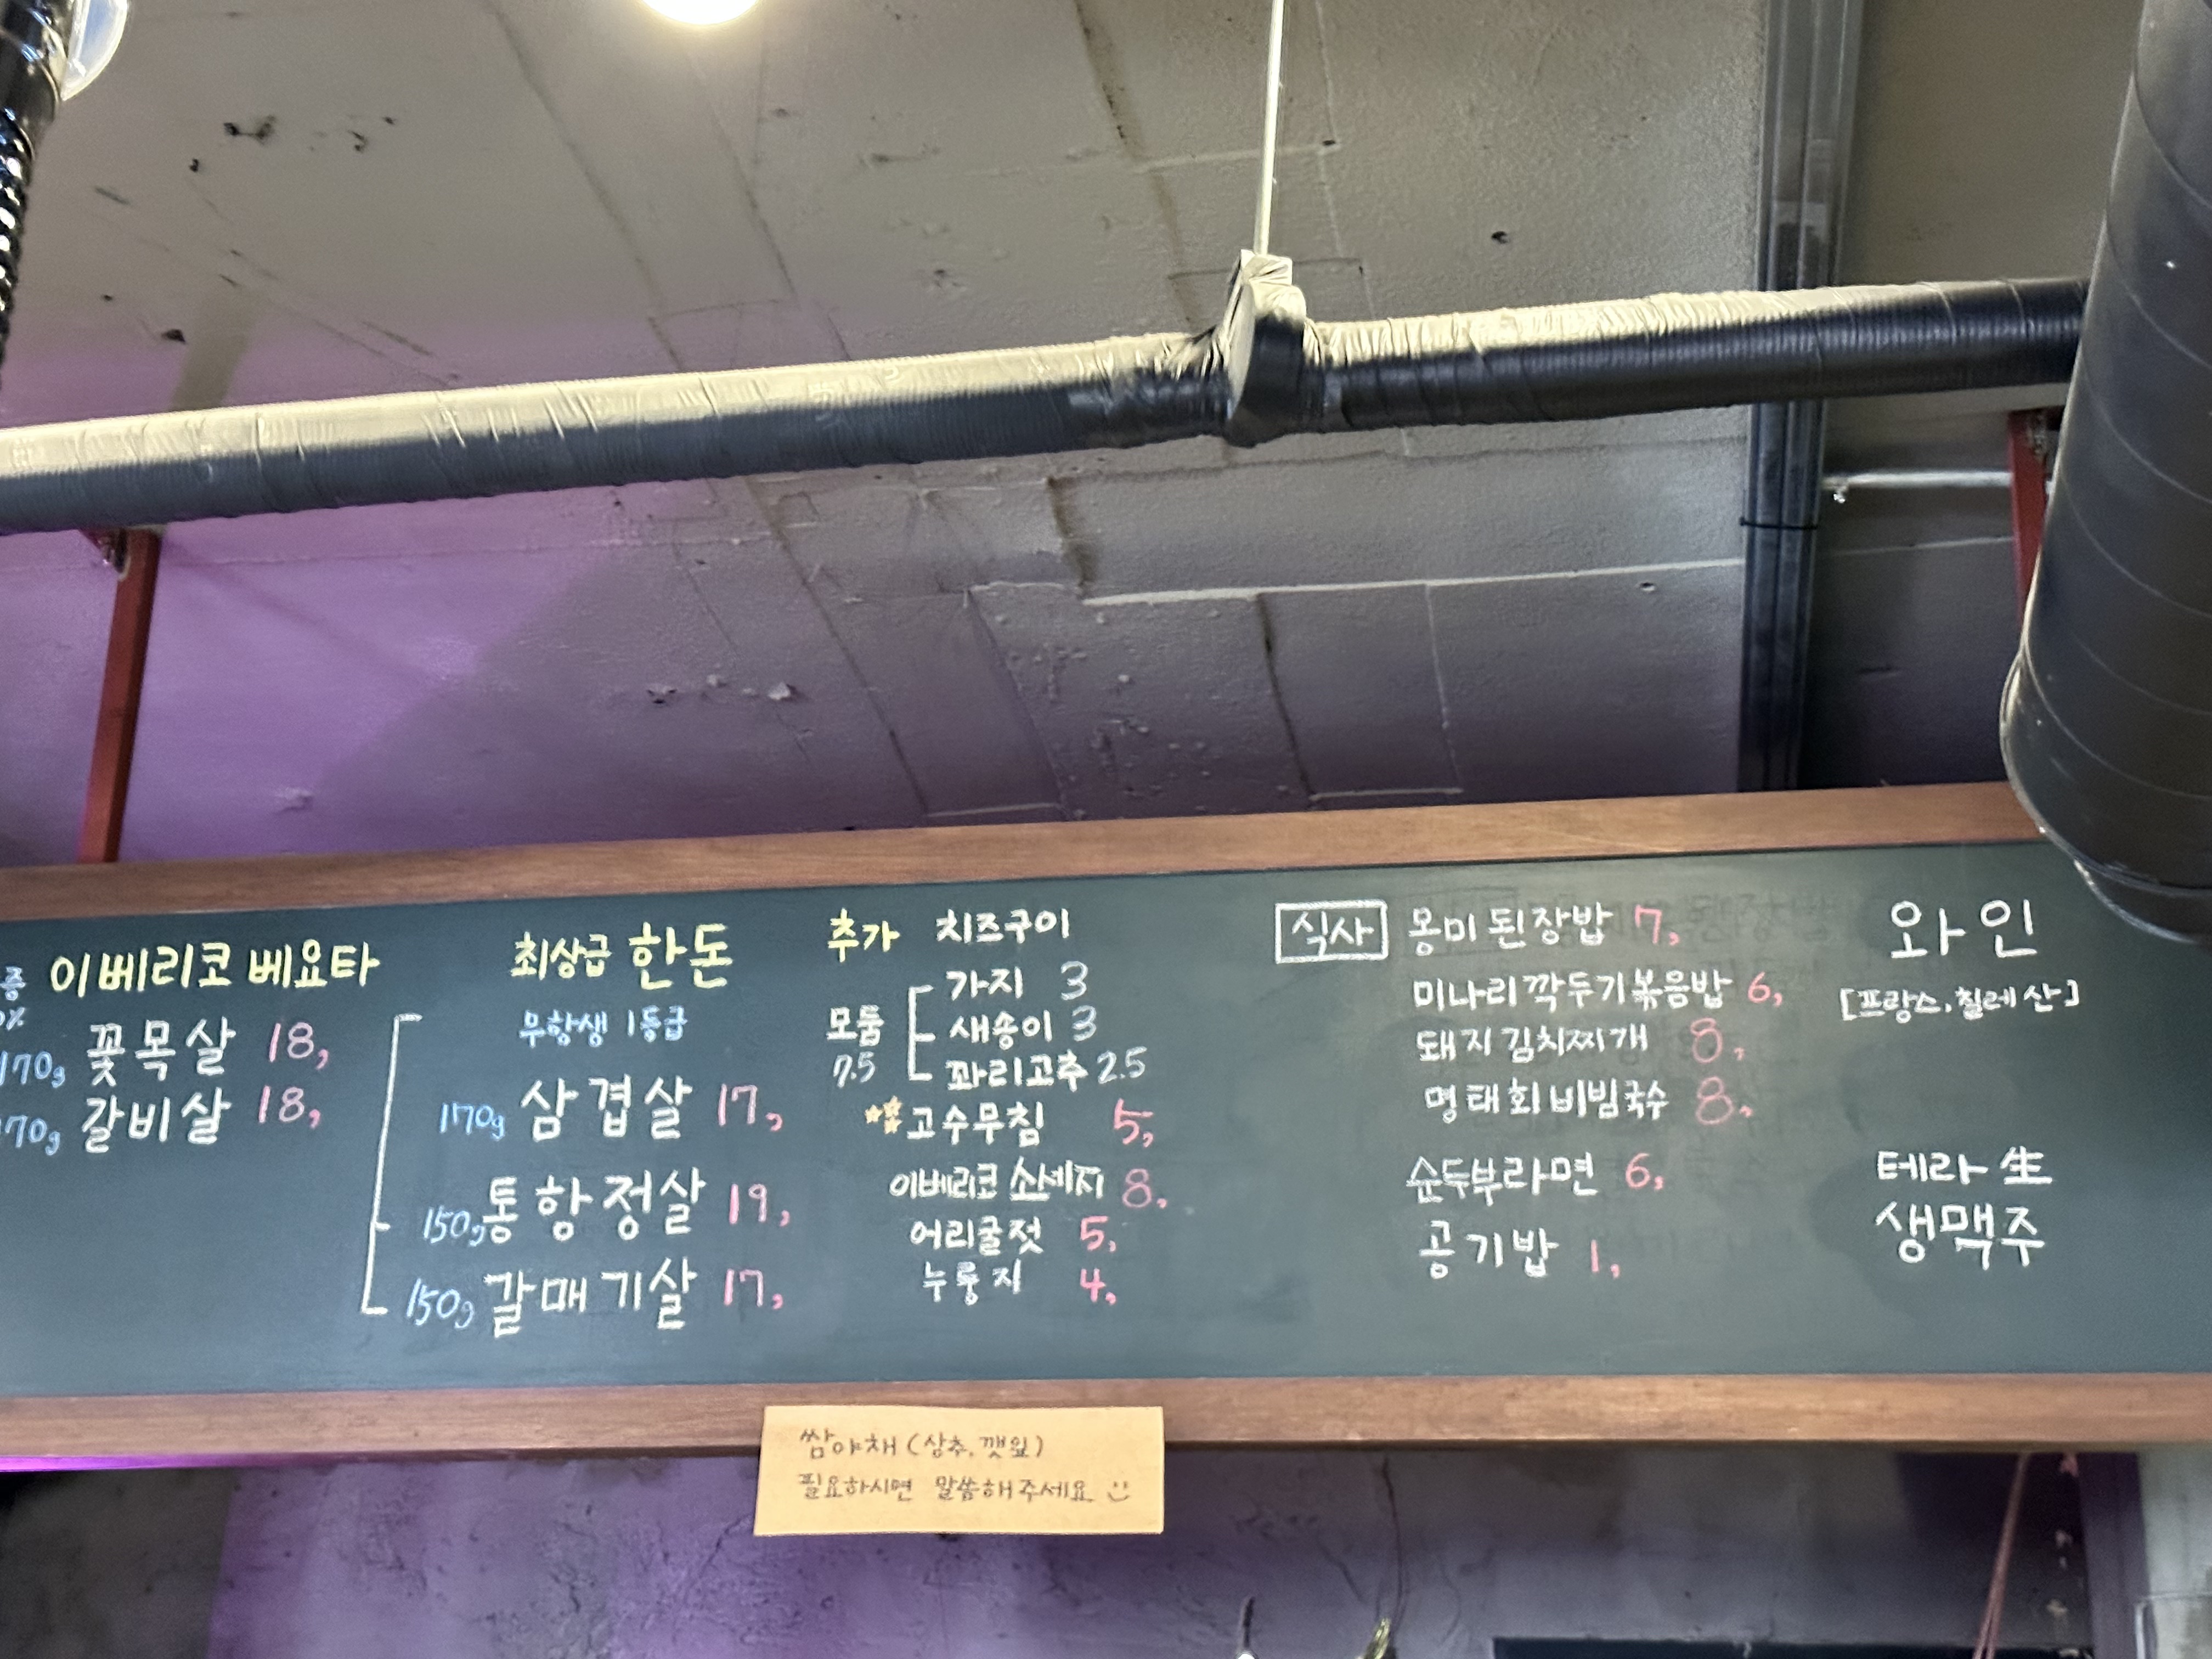 이베리코 베요타
170g 꽃목살 18,
갈비살 18,
최상급 한돈
무항생 1등급
170g 삼겹살 17,
150g 통항정살 19,
150g 갈매기살 17,
추가 치즈구이
가지 3
모둠 새송이 3
7.5 꽈리고추 2.5
고수무침 5,
이베리코 소세지 8,
어리굴젓 5,
누룽지 4,
식사 몽미 된장밥 7,
미나리깍두기볶음밥 6,
돼지김치찌개 8,
명태회비빔국수 8,
순두부라면 6,
공기밥 1,
와인
[프랑스, 칠레산]
테라 生
생맥주
쌈야채 (상추, 깻잎)
필요하시면 말씀해주세요 :)